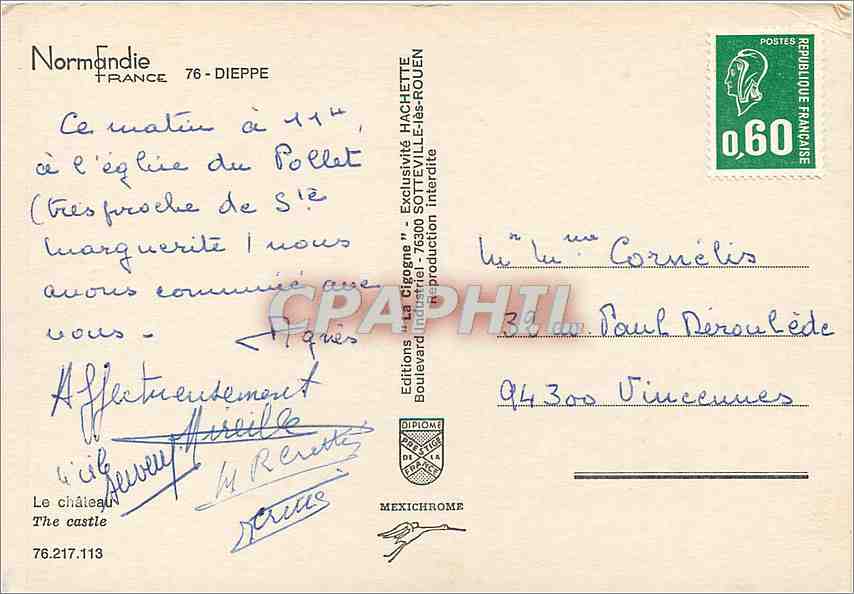 Normandie
FRANCE 76 - DIEPPE
Ce matin à 11H,
à l'église du Pollet
(très proche de Ste
Marguerite) nous
avons communié avec
vous -
Agnès
Affectueusement
Mireille
Le château
The castle
76.217.113
Editions "La Cigogne" - Exclusivité HACHETTE
Boulevard Industriel - 76300 SOTTEVILLE-lès-ROUEN
Reproduction interdite
DIPLOME
PRESTIGE
DE LA
FRANCE
MEXICHROME
POSTES
REPUBLIQUE FRANÇAISE
0,60
Mr Mme Cornélis
39 av. Paul Déroulède
94300 Vincennes
CPAPHIL